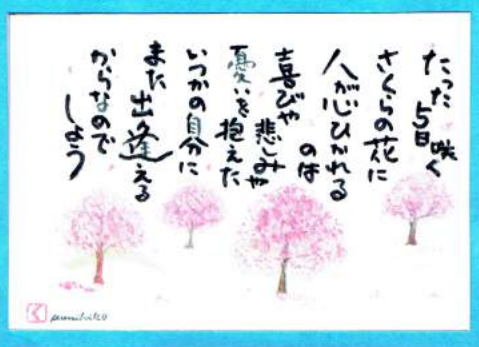 たった 5日 咲く
さくらの花に
人が心ひかれる
のは
喜びや 悲しみや
憂いを 抱えた
いつかの自分に
また 出逢える
からなので
しょう
く